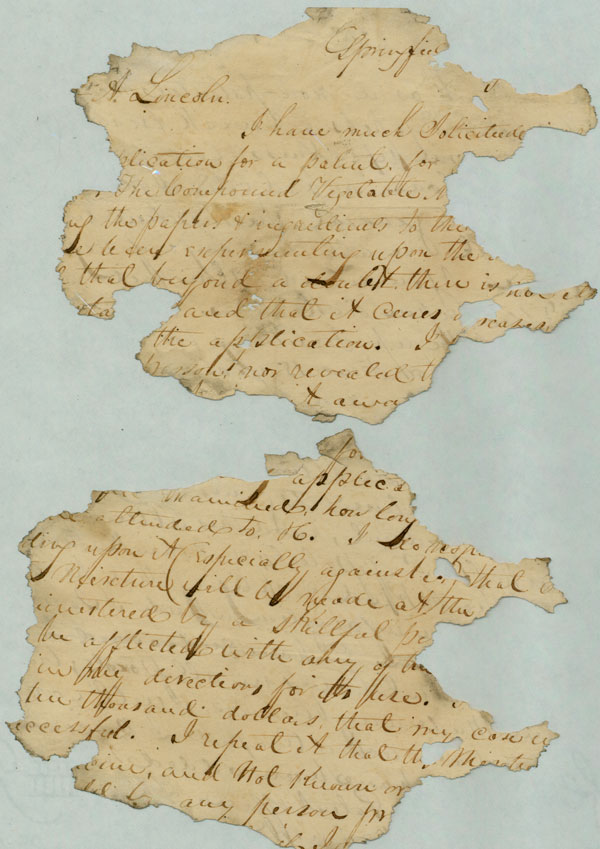 Springfiel
A. Lincoln.
I have much Solicitude
lication for a patent. for
The Compound Vegetable.
ng the papers & ingredients to the
as been experimenting upon the
that beyond a doubt there is now
and that it Cures
the application. I
nor revealed t
it away
for
applica
examined, how long
attended to. &c. I
ding upon it (Especially against that
Mixture) will be made at the
inistered by a Skillful pe
be afflicted with any of the
in my directions for its use.
ten thousand dollars, that my case
uccessful. I repeat it that the Mixtu
icine, and Not Known or
any person